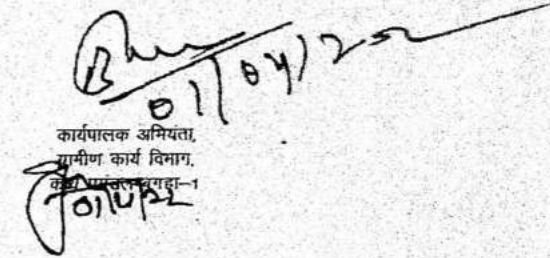 01/04/22
कार्यपालक अभियंता,
ग्रामीण कार्य विभाग,
कार्य प्रमंडल, बगहा-1
01/4/22